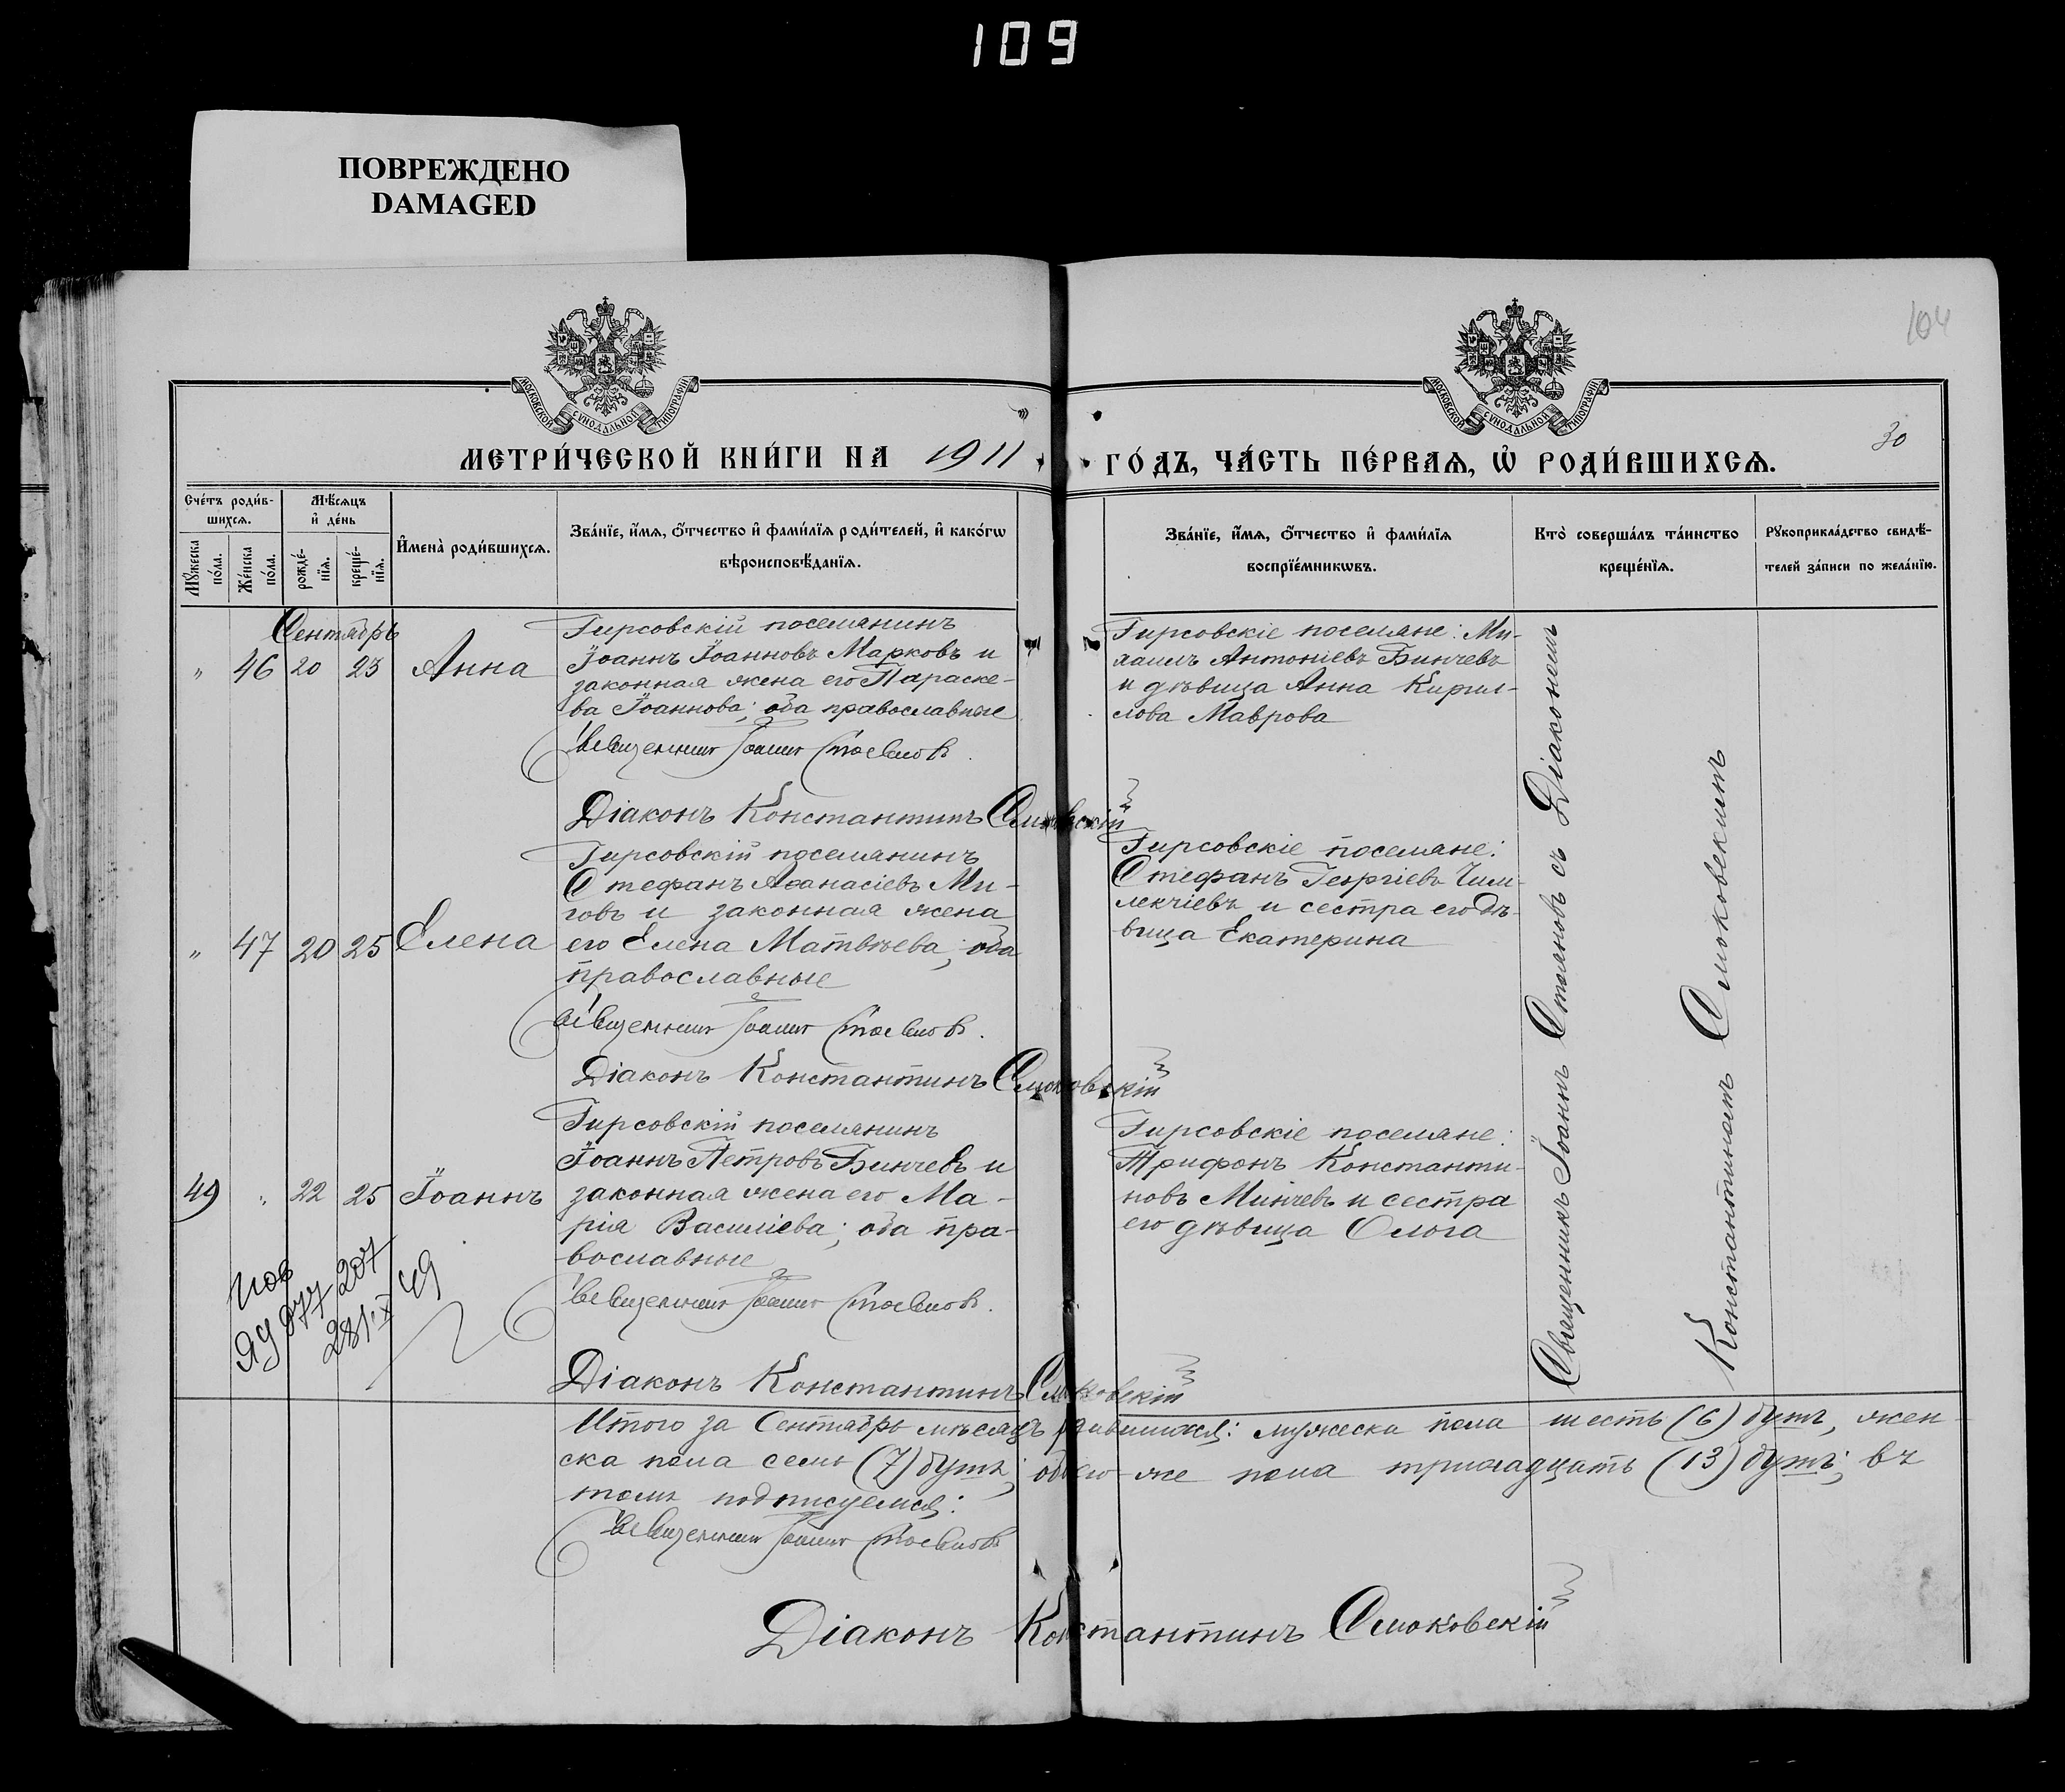 109
ПОВРЕЖДЕНО
DAMAGED
104
МОСКОВСКОЙ СУНОДАЛЬНОЙ ТИПОГРАФІИ
МОСКОВСКОЙ СУНОДАЛЬНОЙ ТИПОГРАФІИ
30
МЕТРИ́ЧЕСКОЙ КНИ́ГИ НА 1911
ГО́ДЪ, ЧА́СТЬ ПЕ́РВАѦ, Ѡ҆ РОДИ́ВШИХСѦ.
Сче́тъ роди́в-
шихсѧ.
Мꙋ́жеска
по́ла.
Же́нска
по́ла.
Мѣ́сѧцъ
и҆ де́нь
рожде́-
нїѧ.
креще́-
нїѧ.
И҆мена̀ роди́вшихсѧ.
Зва́нїе, и҆́мѧ, ѻ҆́тчество и҆ фами́лїѧ роди́телей, и҆ како́гѡ
вѣроисповѣ́данїѧ.
Зва́нїе, и҆́мѧ, ѻ҆́тчество и҆ фами́лїѧ
воспрїе́мникѡвъ.
Кто̀ соверша́лъ та́инство
креще́нїѧ.
Рꙋкоприкла́дство свидѣ́-
телей за́писи по жела́нїю.
Сентябрь
" 46 20 23 Анна
Гирсовскій поселянинъ
Іоаннъ Іоанновъ Марковъ и
законная жена его Параске-
ва Іоаннова; оба православные
Священникъ Іоаннъ Стояновъ.
Діаконъ Константинъ Смоковскій
Гирсовскіе поселяне: Ми-
хаилъ Антоніевъ Бинчевъ
и дѣвица Анна Кирил-
лова Маврова
" 47 20 25 Елена
Гирсовскій поселянинъ
Стефанъ Аѳанасіевъ Ми-
говъ и законная жена
его Елена Матвѣева; оба
православные
Священникъ Іоаннъ Стояновъ.
Діаконъ Константинъ Смоковскій
Гирсовскіе поселяне:
Стефанъ Георгіевъ Чим-
лекчіевъ и сестра его дѣ-
вица Екатерина
49 " 22 25 Іоаннъ
Гирсовскій поселянинъ
Іоаннъ Петровъ Бинчевъ и
законная жена его Ма-
рія Василіева; оба пра-
вославные
Священникъ Іоаннъ Стояновъ.
Діаконъ Константинъ Смоковскій
Гирсовскіе поселяне:
Трифонъ Константи-
новъ Минчевъ и сестра
его дѣвица Ольга
Священникъ Іоаннъ Стояновъ съ Діакономъ
Константиномъ Смоковскимъ
28/IX 49
Итого за Сентябрь мѣсяцъ родившихся: мужеска пола шесть (6) душъ, жен-
ска пола семь (7) душъ; обоего же пола тринадцать (13) душъ; въ
томъ подписуемся:
Священникъ Іоаннъ Стояновъ
Діаконъ Константинъ Смоковскій